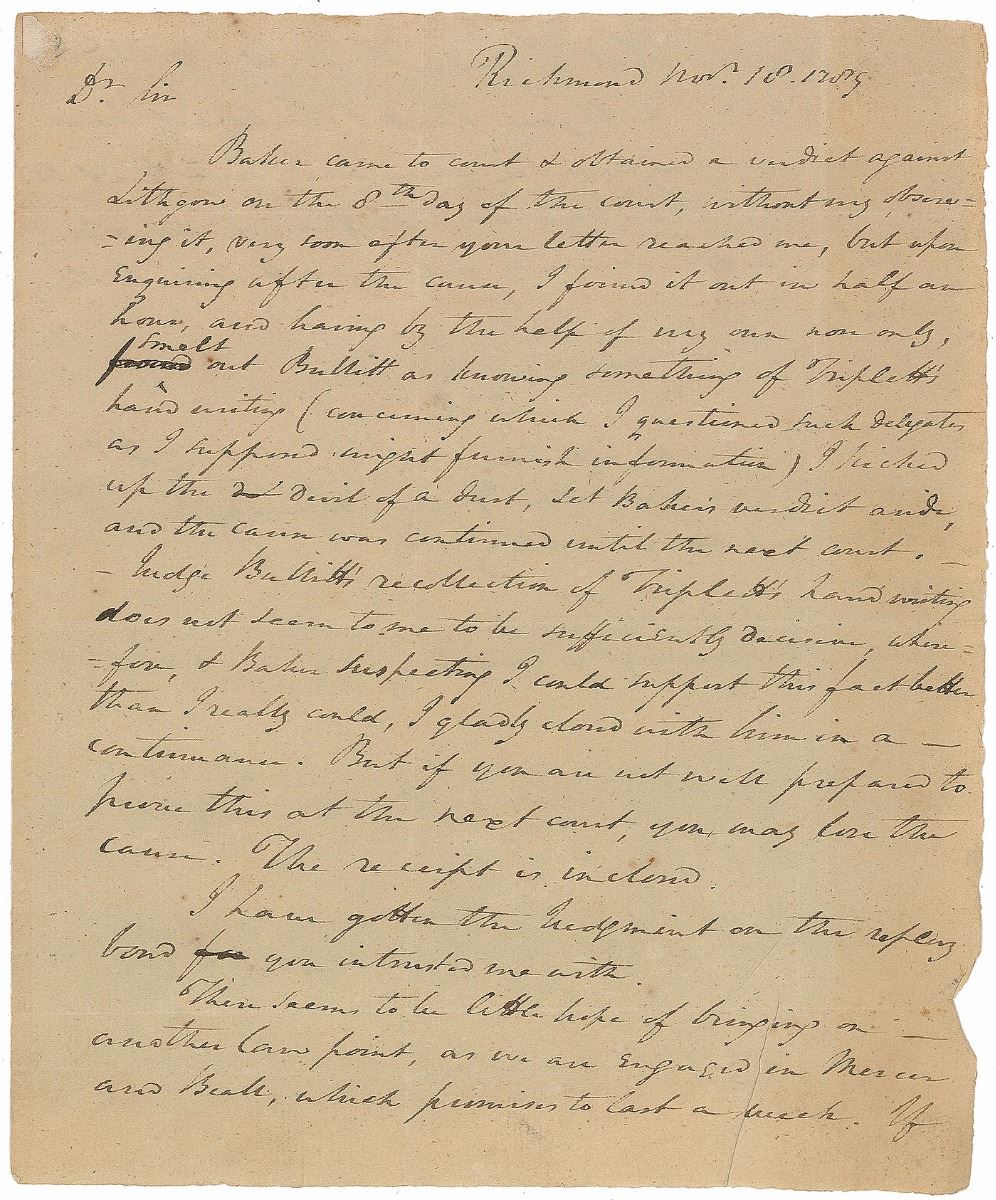 Richmond Nov.r 18. 1789
Dr. Sir
Baker came to court & obtained a verdict against
Lithgow on the 8th day of the court, without my observ=
=ing it, very soon after your letter reached me, but upon
Enquiring after the cause, I found it out in half an
hour, and having by the help of my own nose only,
smelt
found out Bullitt as knowing something of Triplett's
hand writing (concerning which I questioned such delegates
as I supposed might furnish information) I kicked
up the devil of a dust, set Baker's verdict aside,
and the cause was continued until the next court. —
— Judge Bullitt's recollection of Triplett's hand writing
does not seem to me to be sufficiently decisive, where=
=fore, & Baker suspecting I could support this fact better
than I really could, I gladly closed with him in a —
continuance. But if you are not well prepared to
prove this at the next court, you may lose the
cause. The receipt is inclosed.
I have gotten the Judgment on the replevy
bond for you intrusted me with.
There seems to be little hope of bringing on —
another law point, as we are Engaged in Mercer
and Beall, which promises to last a week. If